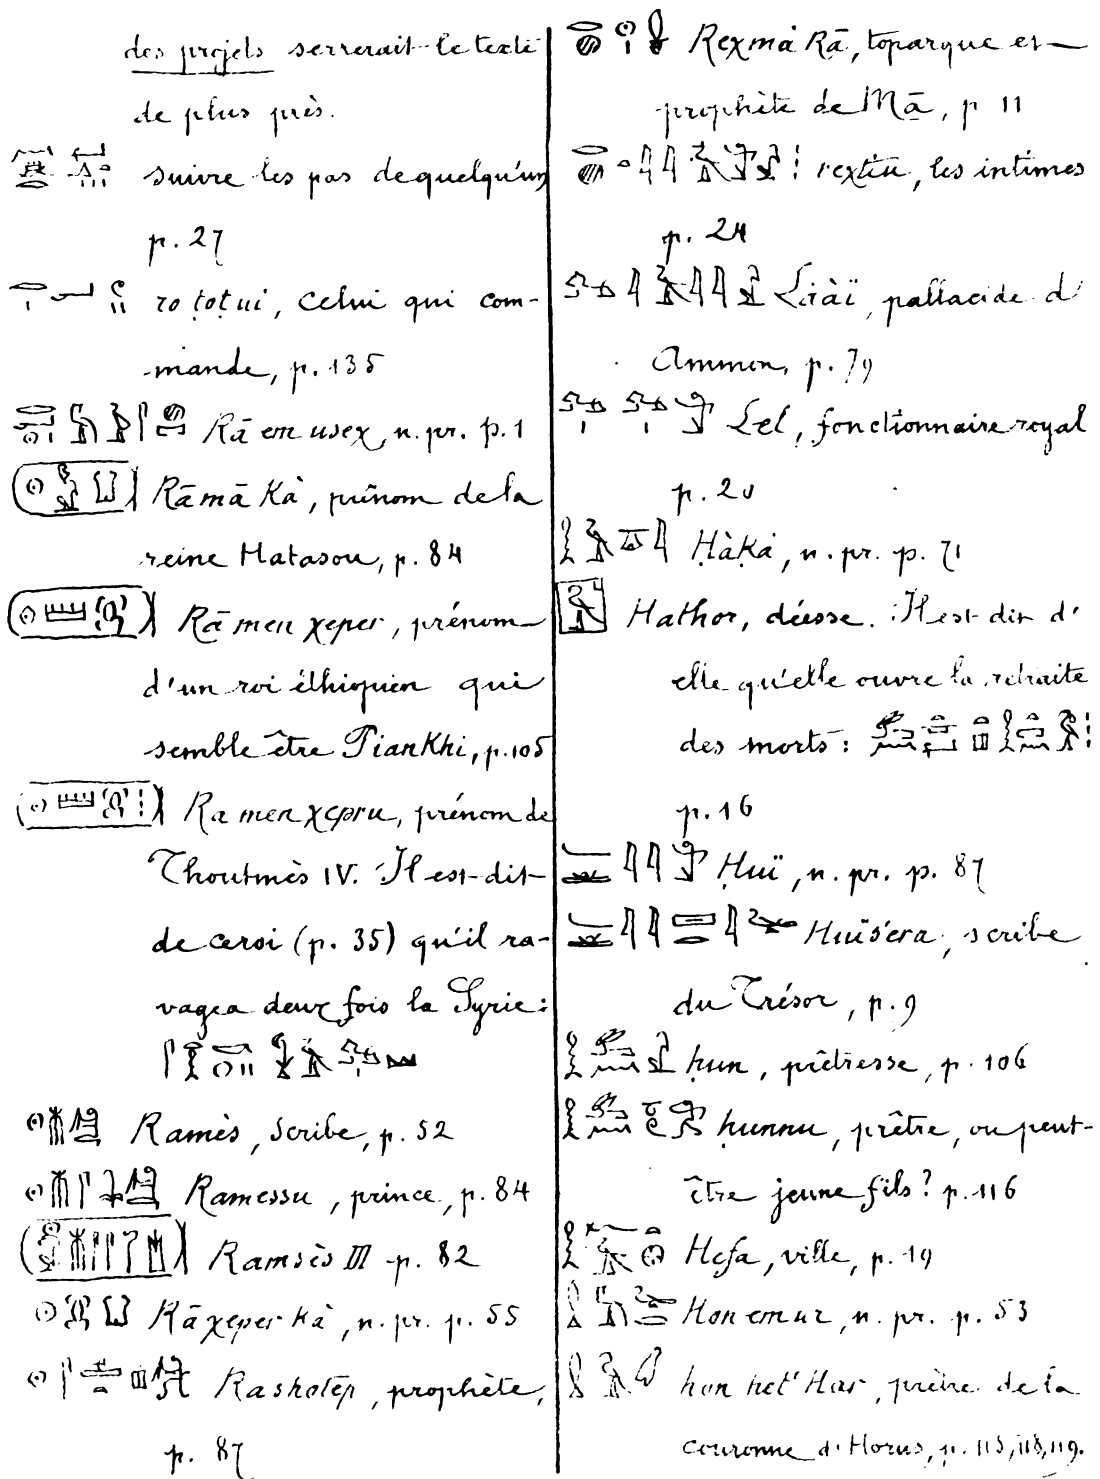 des projets serrerait le texte
de plus près.
suivre les pas de quelqu'un
p. 27
ro ṭoṭui, celui qui com-
mande, p. 135
Rā em usex, n. pr. p. 1
Rāmā Kȧ, prénom de la
reine Hatasou, p. 84
Rā men χeper, prénom
d'un roi éthiopien qui
semble être Piankhi, p. 105
Ra men χepru, prénom de
Thoutmès IV. Il est dit
de ce roi (p. 35) qu'il ra-
vagea deux fois la Syrie:
Ramès, scribe, p. 52
Ramessu, prince, p. 84
Ramsès III p. 82
Rā χeper kȧ, n. pr. p. 55
Rashotep, prophète,
p. 87
Reχmȧ Rā, toparque et
prophète de Mā, p 11
reχtiu, les intimes
p. 24
pallacide d'
Ammon, p. 79
Lel, fonctionnaire royal
p. 20
ḤȧKȧ, n. pr. p. 71
Hathor, déesse. Il est dit d'
elle qu'elle ouvre la retraite
des morts:
p. 16
Ḥuï, n. pr. p. 87
Huïs'era, scribe
du Trésor, p. 9
ḥun, prêtresse, p. 106
ḥunnu, prêtre, ou peut-
être jeune fils? p. 116
Hefa, ville, p. 19
Hon em ur, n. pr. p. 53
hon het' Har, prêtre de la
couronne d'Horus, p. 115, 118, 119.